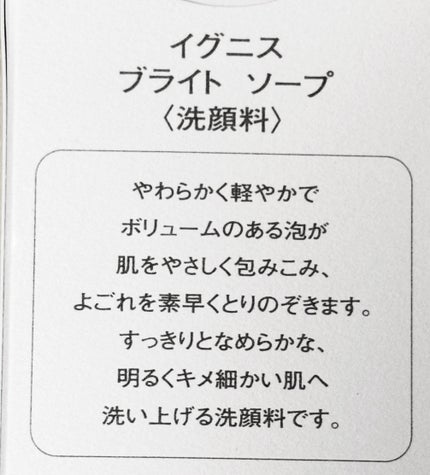 イグニス
ブライト ソープ
〈洗顔料〉
やわらかく軽やかで
ボリュームのある泡が
肌をやさしく包みこみ、
よごれを素早くとりのぞきます。
すっきりとなめらかな、
明るくキメ細かい肌へ
洗い上げる洗顔料です。